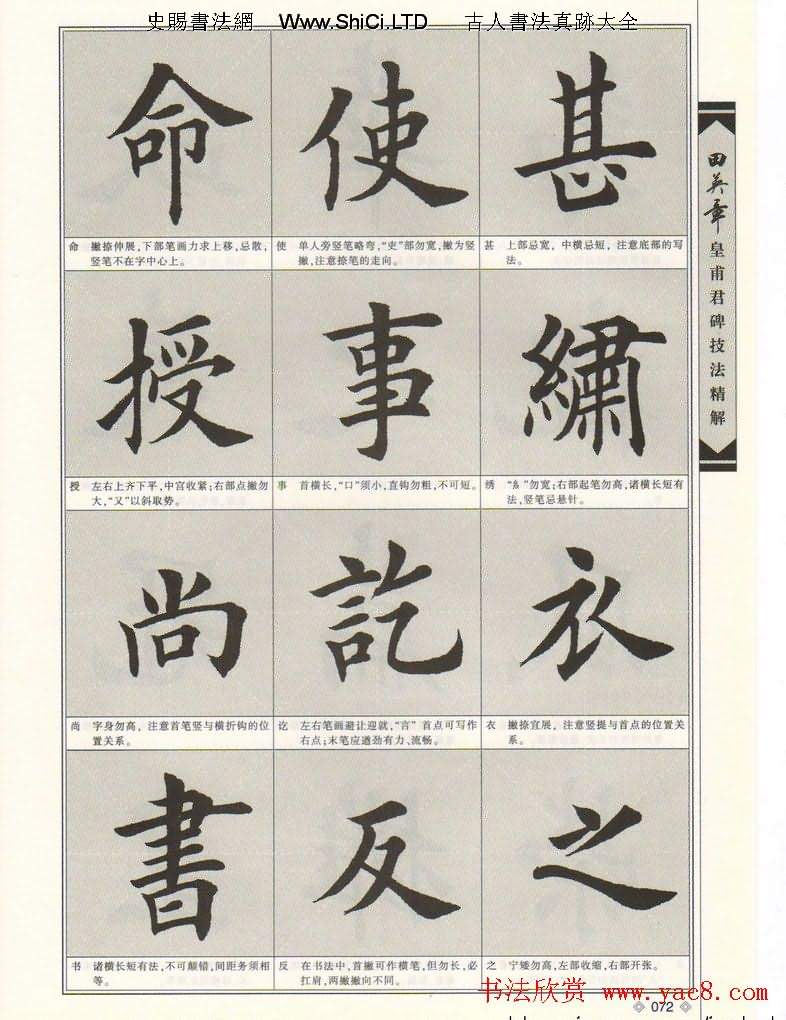 史賜書法網 Www.ShiCi.LTD 古人書法真跡大全
命
使
甚
命 撇捺伸展,下部笔画力求上移,忌散,
竖笔不在字中心上。
使 单人旁竖笔略弯,“吏”部勿宽,撇为竖
撇,注意捺笔的走向。
甚 上部忌宽,中横忌短,注意底部的写
法。
授
事
繡
授 左右上齐下平,中宫收紧;右部点撇勿
大,“又”以斜取势。
事 首横长,“口”须小,直钩勿粗,不可短。
绣 “糹”勿宽;右部起笔勿高,诸横长短有
法,竖笔忌悬针。
尚
訖
衣
尚 字身勿高,注意首笔竖与横折钩的位
置关系。
讫 左右笔画避让迎就,“言”首点可写作
右点;末笔应遒劲有力、流畅。
衣 撇捺宜展,注意竖提与首点的位置关
系。
書
反
之
书 诸横长短有法,不可颠错,间距务须相
等。
反 在书法中,首撇可作横笔,但勿长,必
扛肩,两撇撇向不同。
之 宁矮勿高,左部收缩,右部开张。
田英章
皇甫君碑技法精解
书法欣赏 www.yac8.com
072